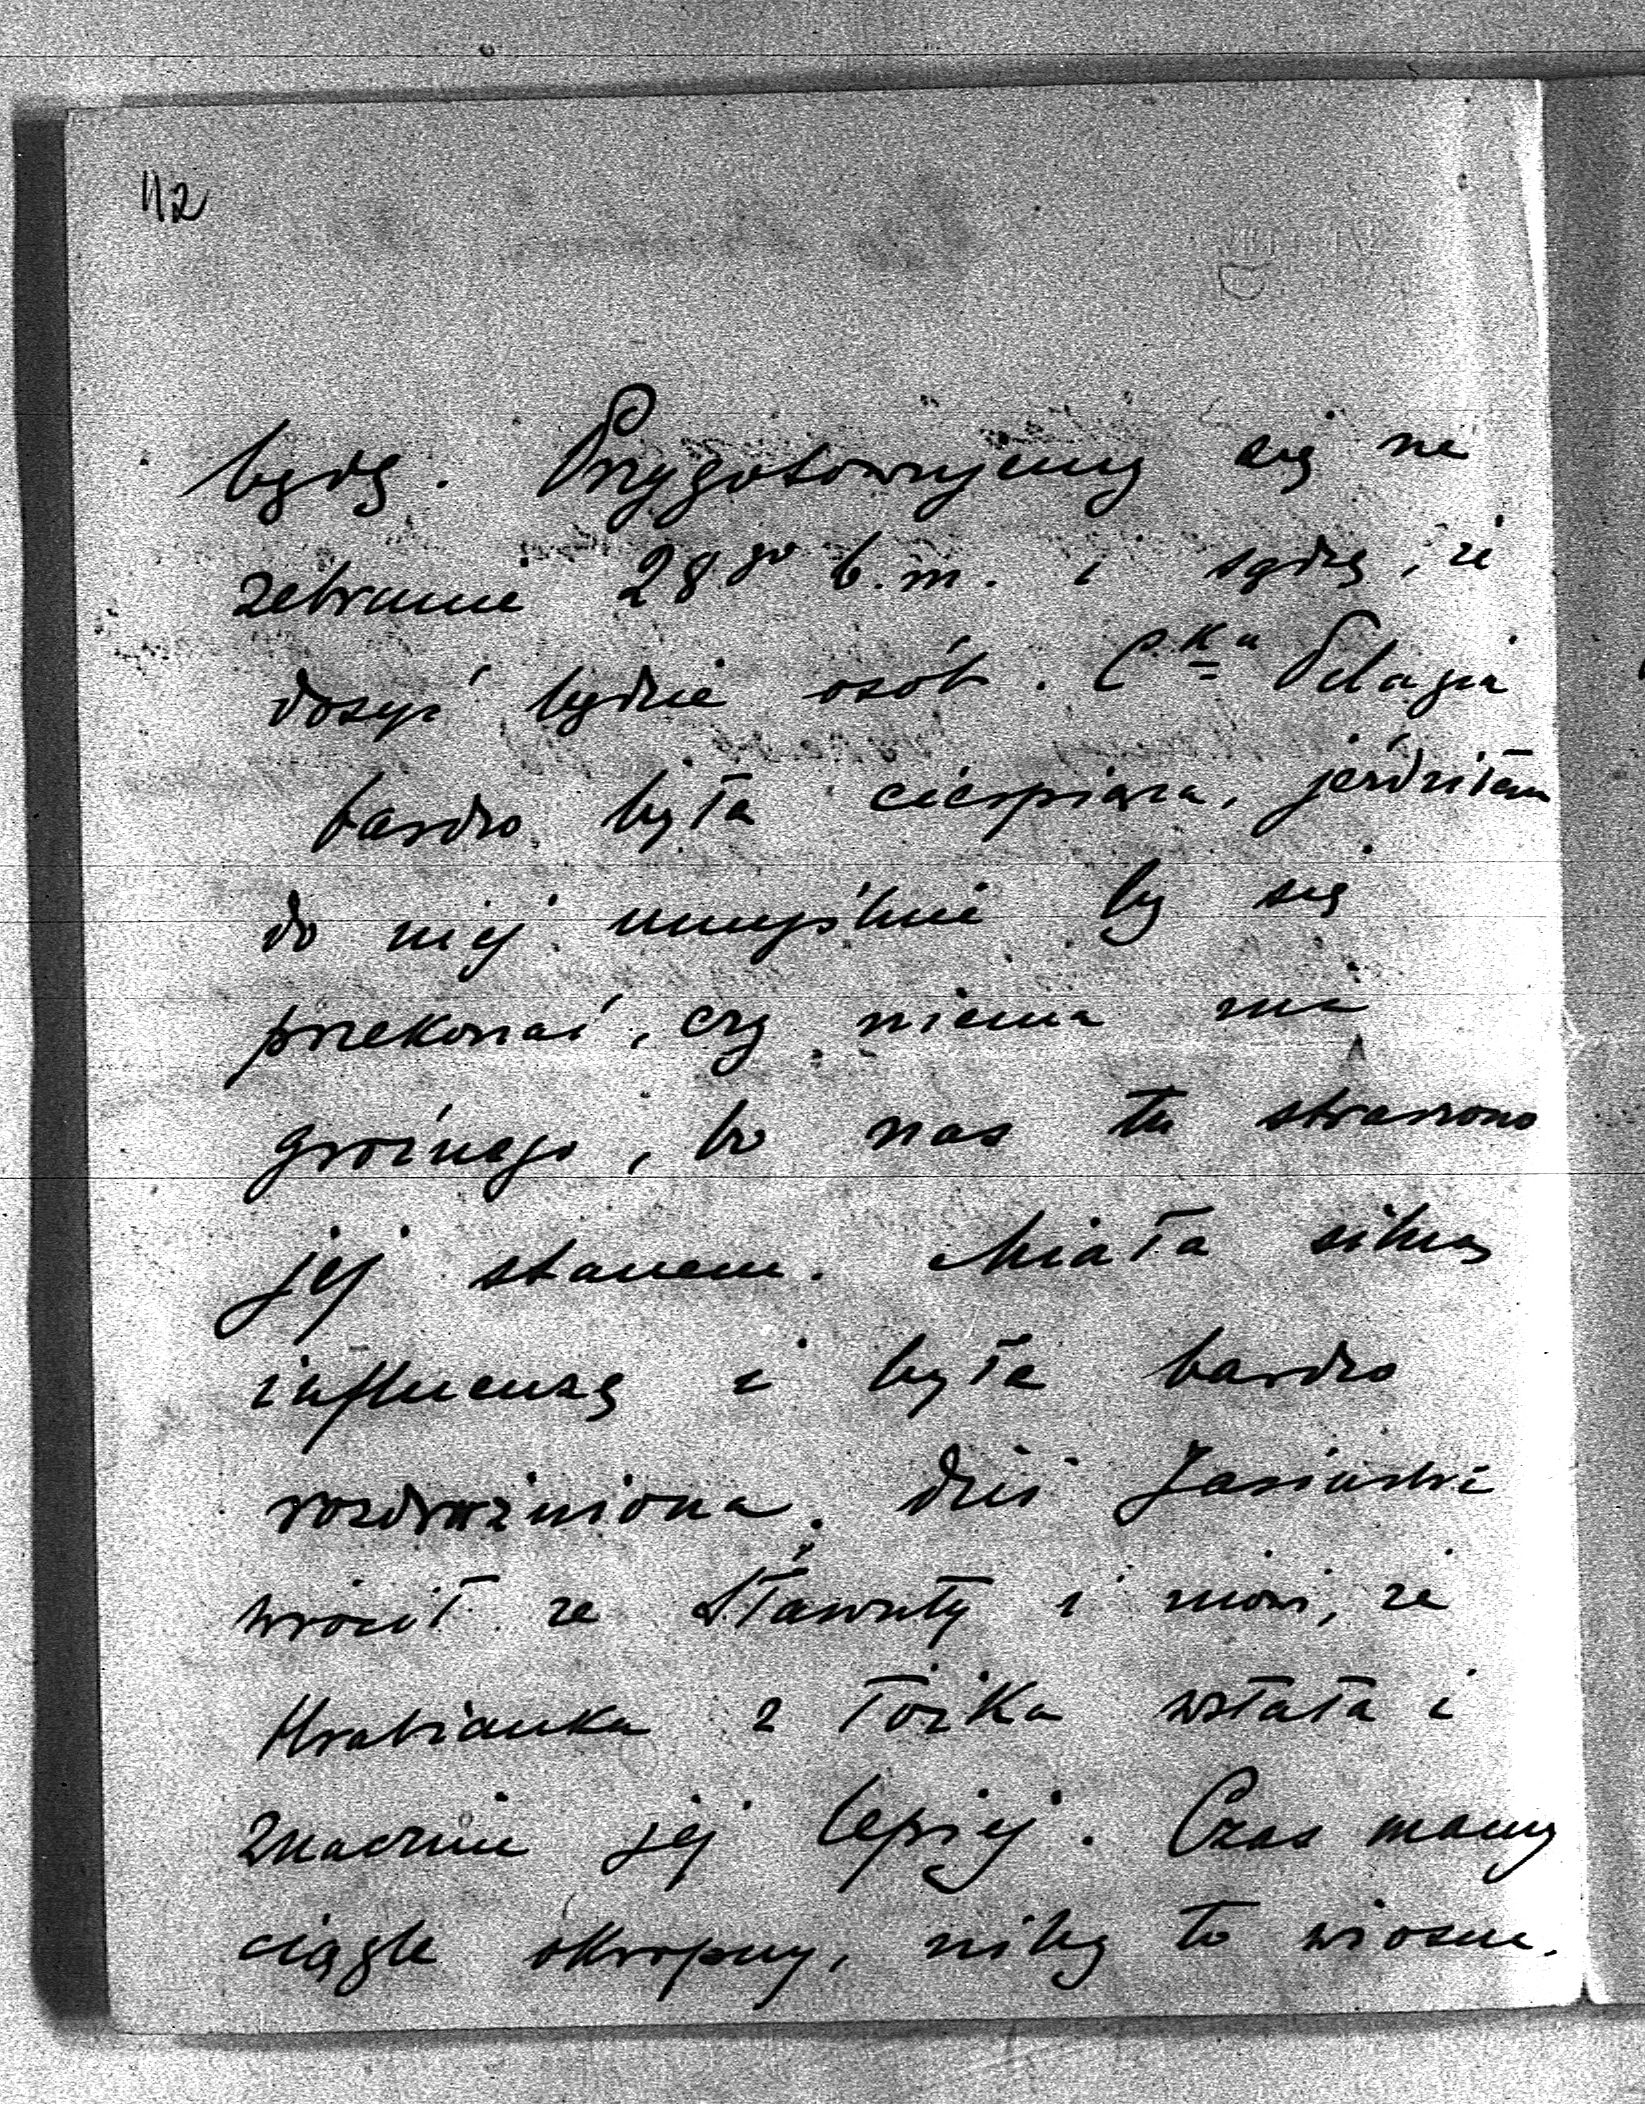 112
będę. Przygotowujemy się na
zebranie 28go b.m. i sądzę, że
dosyć będzie osób. Cka Pelagia
bardzo była cierpiąca, jeździłam
do niej umyślnie by się
przekonać, czy niema nic
groźnego, bo nas tu straszono
jej stanem. Miała silną
influenzę i była bardzo
rozdrażniona. Dziś Jasiński
wrócił ze Sławuty i mówi, że
Hrabianka z łóżka wstała i
znacznie jej lepiej. Czas mamy
ciągle okropny, niby to wiosna.